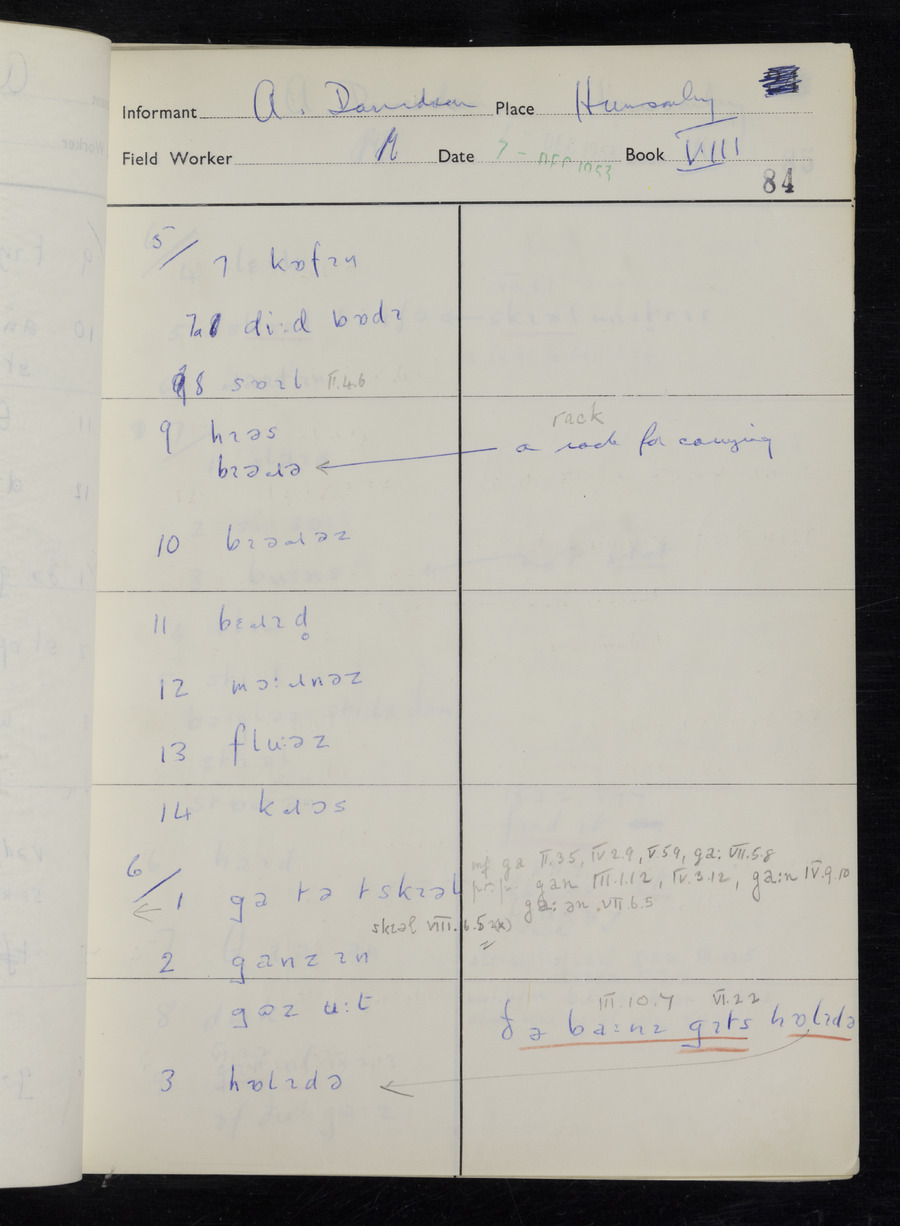 Informant A. Davidson Place Hunsonby
Field Worker Date 7 - DEC 1953 Book VIII
84
5/ 7 kɒfɪn
7a dɪ:d bɒdɪ
8 sɒɪl II.4.6
9 hɪəs
bɪəɹə ← a rack for carrying
rack
10 bɪəɹəz
11 bɛɹɪd̥
12 mɔ:ɹnəz
13 flu:əz
14 kɹɔs
6/ 1 ga tə t skɪəl
inf ga II.3.5, IV 2.9, V 5.9, ga: VII.5.8
pr.p. gan III.1.12, IV.3.12, ga:n IV.9.10
ga: ən VII.6.5
skɪəl VIII.6.5
2 ganz ɪn
gɒz u:t
III.10.7 VI.2.2
ðə ba:nz gɪts hɒlɪdə
3 hɒlɪdə